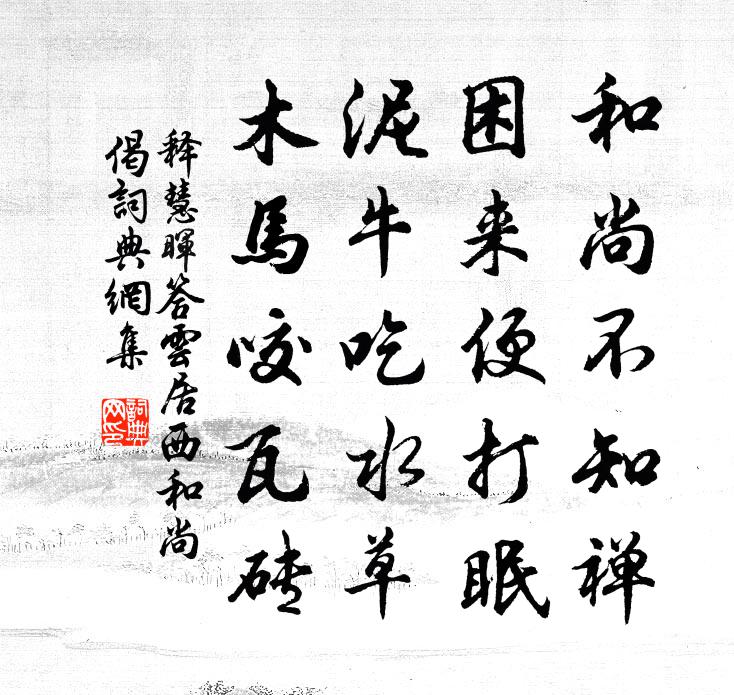 和尚不知禅
困来便打眠
泥牛吃水草
木馬咬瓦砖
释慧暉答雲居西和尚
偈詞典網集
詞典
网印